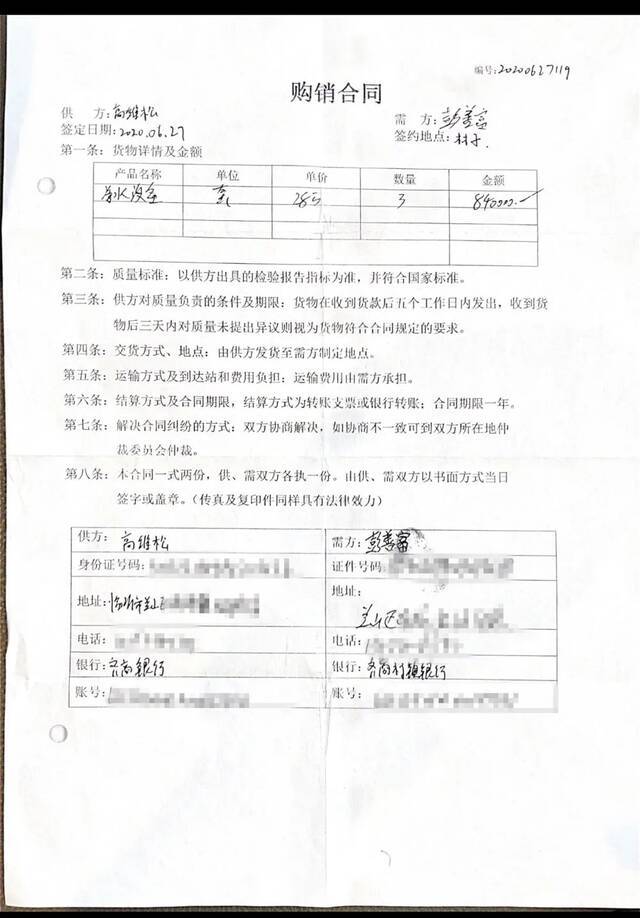 编号:20200627119
购销合同
供 方:高维松 需 方:彭善富
签定日期:2020.06.27 签约地点:村子.
第一条: 货物详情及金额
产品名称 单位 单价 数量 金额
套 28万 3 840000.-
第二条: 质量标准: 以供方出具的检验报告指标为准, 并符合国家标准。
第三条: 供方对质量负责的条件及期限: 货物在收到货款后五个工作日内发出, 收到货
物后三天内对质量未提出异议则视为货物符合合同规定的要求。
第四条: 交货方式、地点: 由供方发货至需方制定地点。
第五条: 运输方式及到达站和费用负担: 运输费用由需方承担。
第六条: 结算方式及合同期限, 结算方式为转账支票或银行转账; 合同期限一年。
第七条: 解决合同纠纷的方式: 双方协商解决, 如协商不一致可到双方所在地仲
裁委员会仲裁。
第八条: 本合同一式两份, 供、需双方各执一份。由供、需双方以书面方式当日
签字或盖章。(传真及复印件同样具有法律效力)
供方: 高维松 需方: 彭善富
身份证号码: 证件号码:
地址: 临沂市兰山区 地址:
兰山区
电话: 电话:
银行: 齐商银行 银行: 齐商村镇银行
账号: 账号: